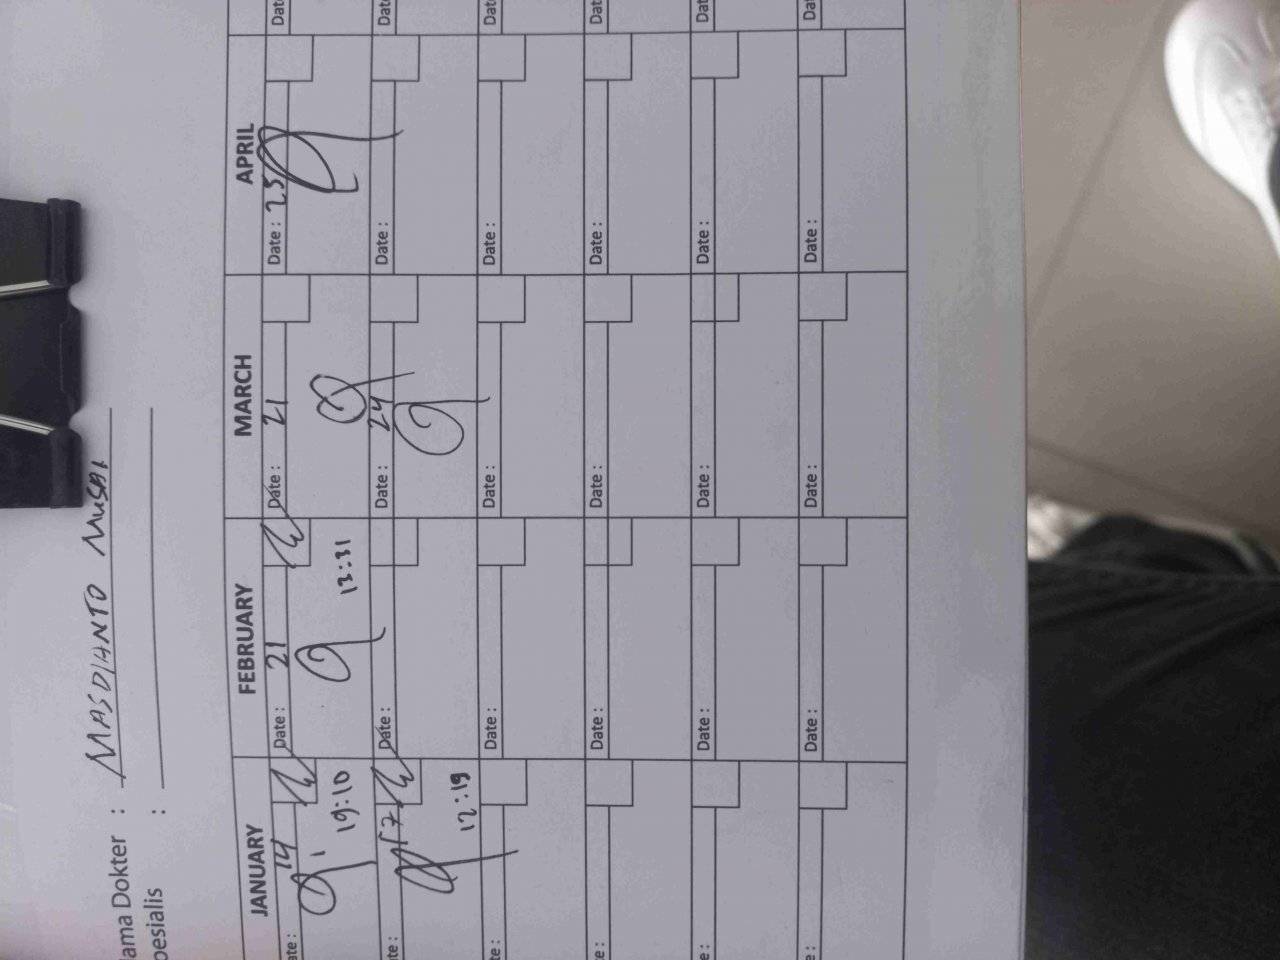 ama Dokter : MASDIANTO MUSAI
pesialis :
JANUARY FEBRUARY MARCH APRIL
ate : 14 Date : 21 Date : 21 Date : 25
19:10 13:31
te : 17 Date : Date : 24 Date :
12:19
: Date : Date : Date :
e : Date : Date : Date :
e : Date : Date : Date :
e : Date : Date : Date :
Dat Dat Dat Dat Dat Dat